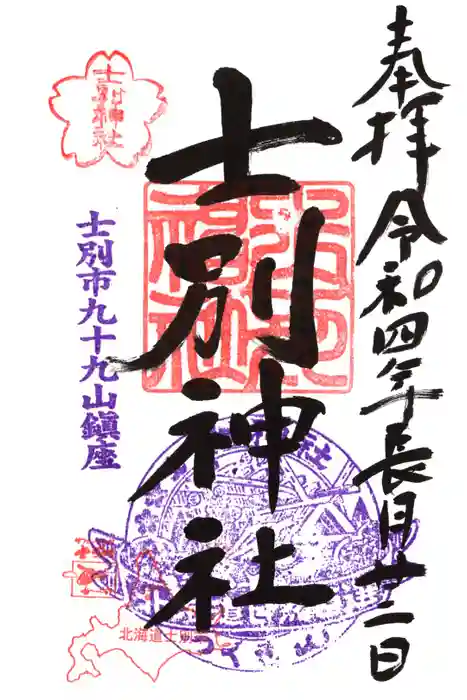 奉拝 令和四年長月廿二日
士別神社
士別神社
士別市九十九山鎮座
北海道士別